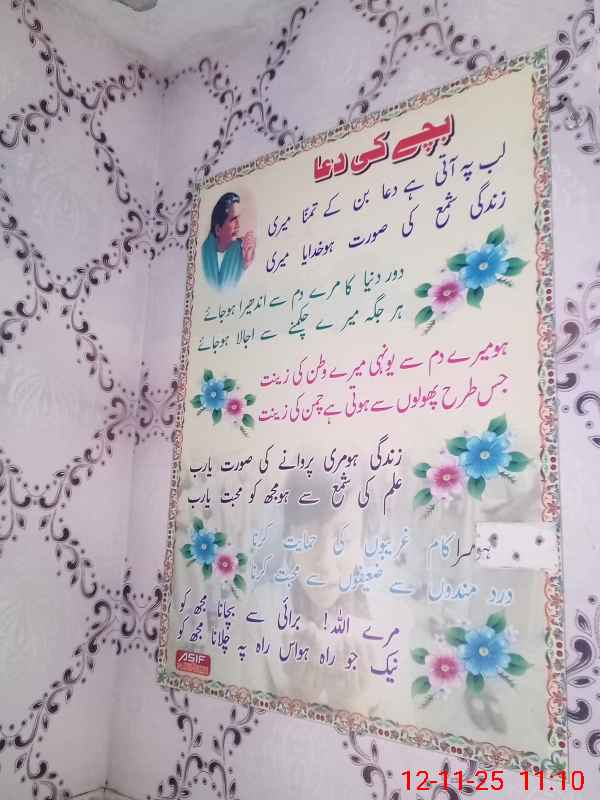 بچے کی دعا
لب پہ آتی ہے دعا بن کے تمنّا میری
زندگی شمع کی صورت ہو خدایا میری
دور دنیا کا مرے دم سے اندھیرا ہو جائے
ہر جگہ میرے چمکنے سے اجالا ہو جائے
ہو میرے دم سے یونہی میرے وطن کی زینت
جس طرح پھولوں سے ہوتی ہے چمن کی زینت
زندگی ہو مری پروانے کی صورت یارب
علم کی شمع سے ہو مجھ کو محبت یارب
ہو مرا کام غریبوں کی حمایت کرنا
درد مندوں سے ضعیفوں سے محبت کرنا
مرے اللہ! برائی سے بچانا مجھ کو
نیک جو راہ ہو اس راہ پہ چلانا مجھ کو
ASIF
12-11-25 11:10